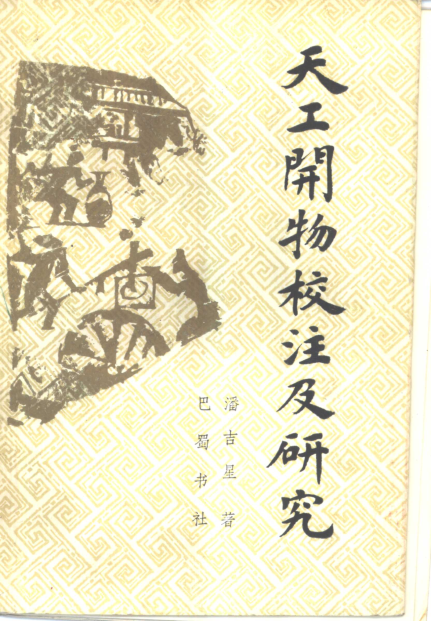 天工開物校注及研究
潘吉星 著
巴蜀书社